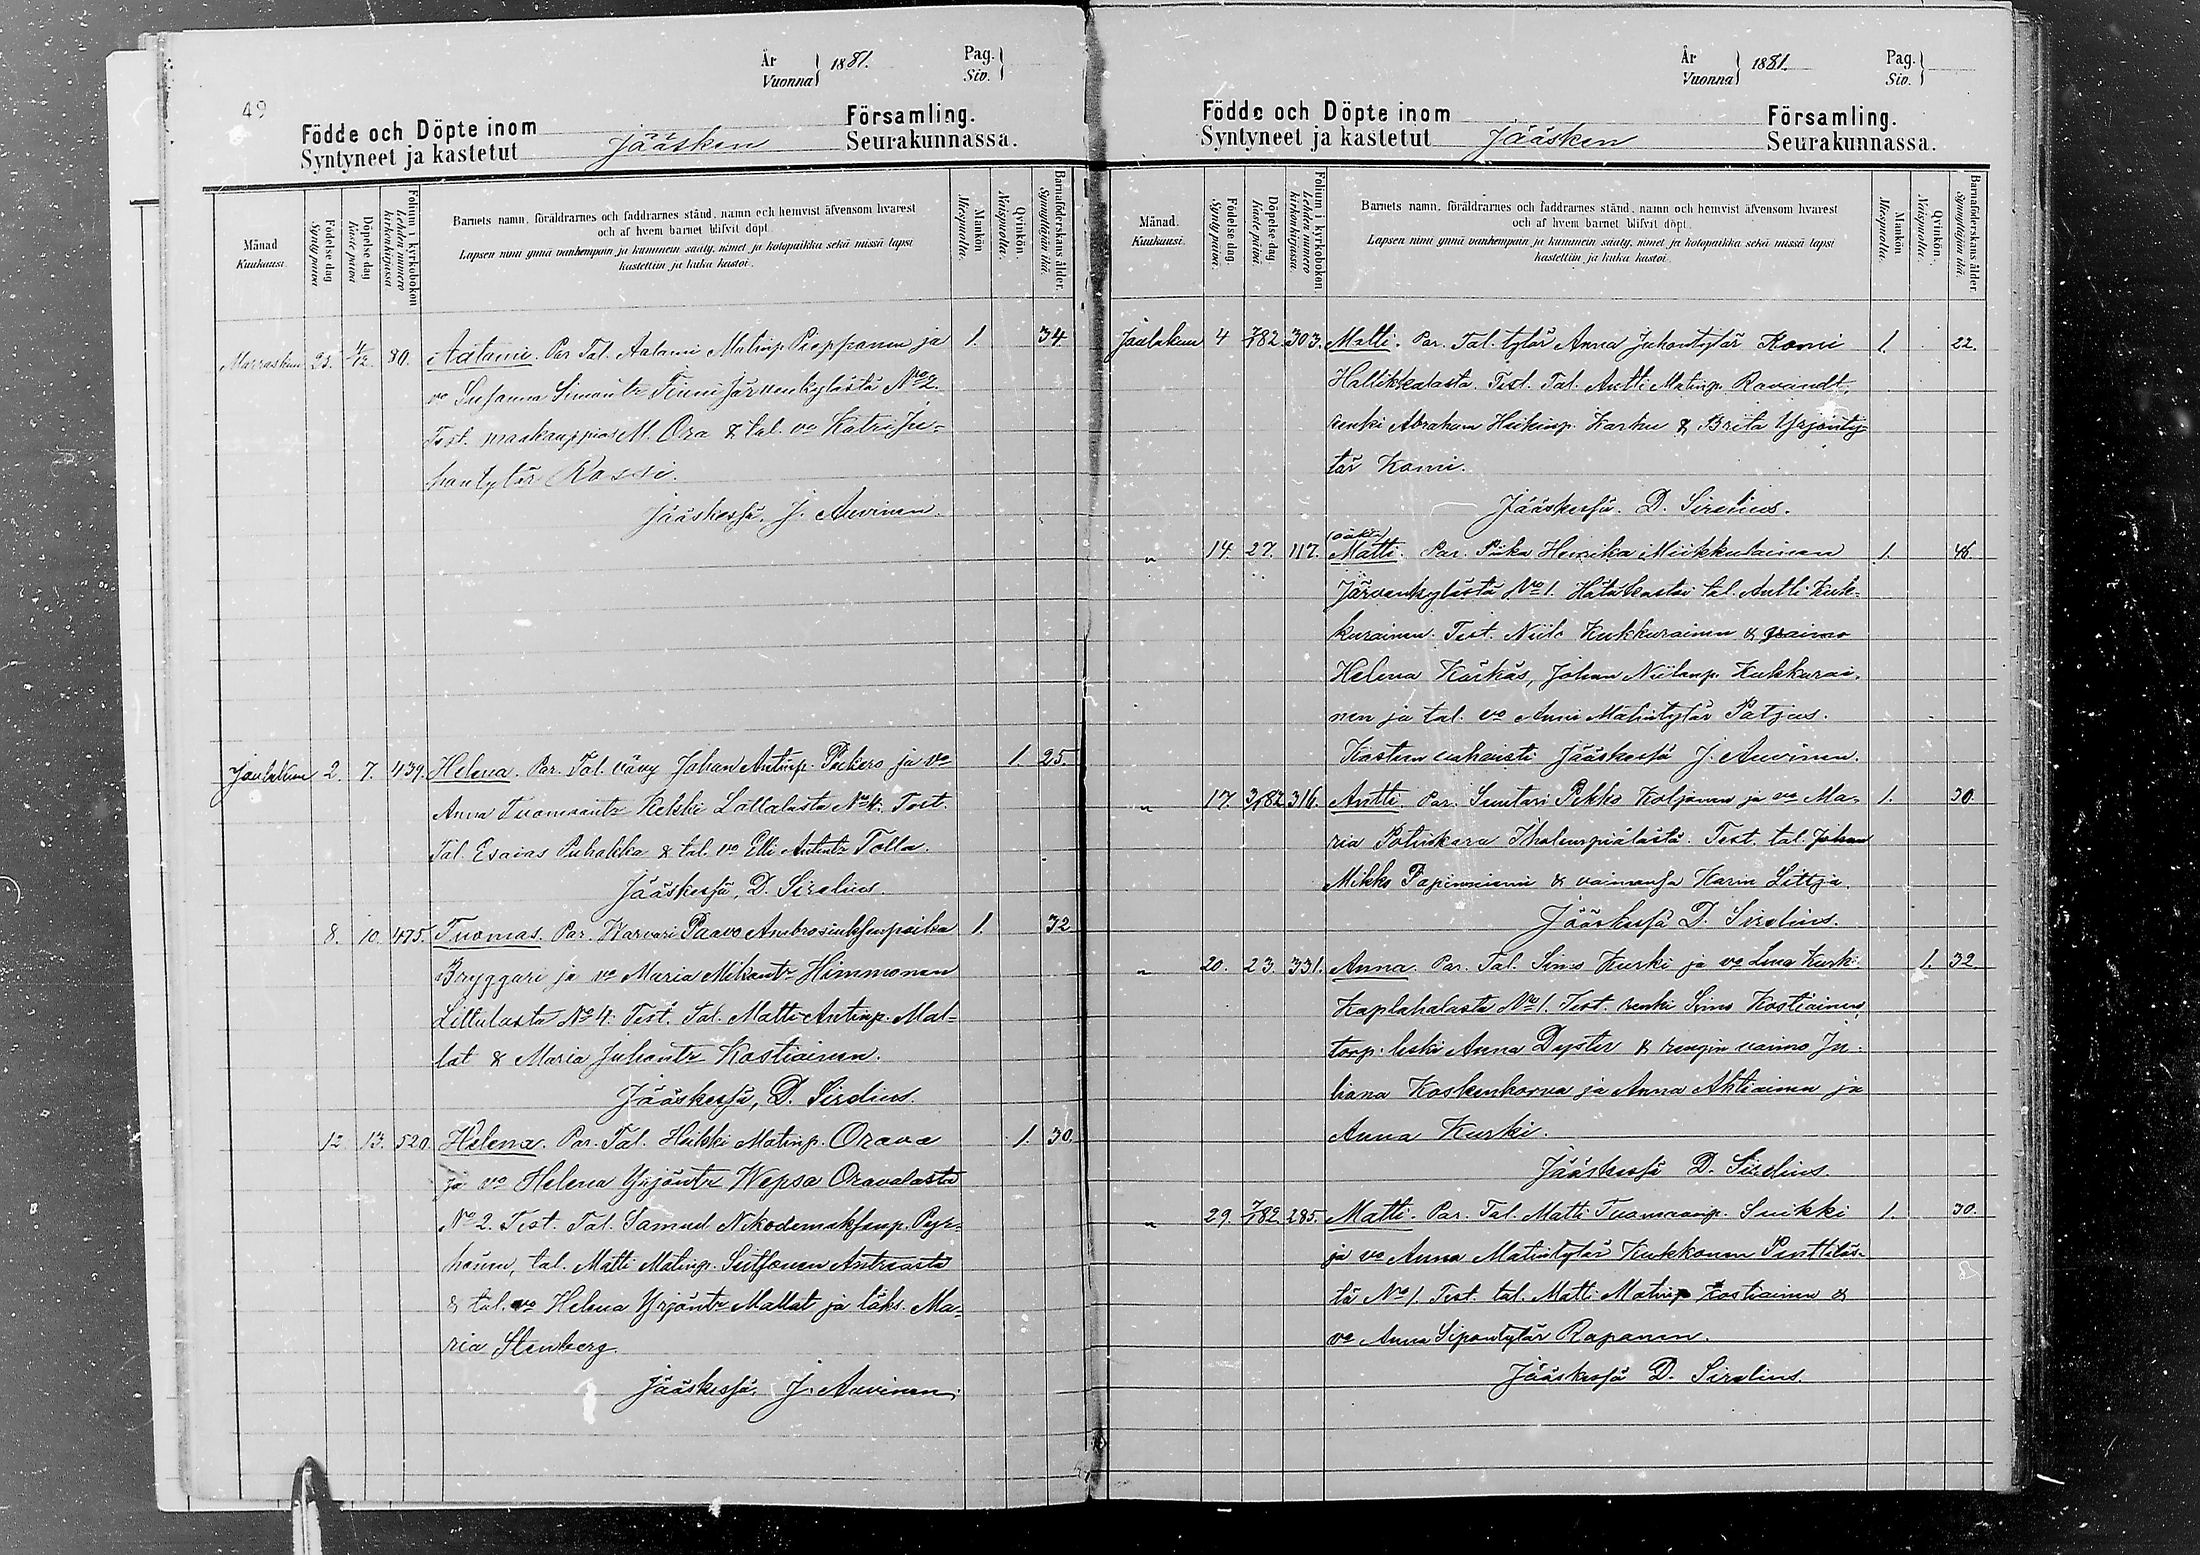 År
Vuonna } 1881.
Pag.
Siv. }
49
Födde och Döpte inom
Syntyneet ja kastetut Jääsken
Församling.
Seurakunnassa.
Månad
Kuukausi.
Födelse dag
Synty päivä
Döpelse dag
Kaste päivä
Folium i kyrkoboken
Lehden numero kirkonkirjassa
Barnets namn, föräldrarnes och faddrarnes stånd, namn och hemvist äfvensom hvarest
och af hvem barnet blifvit döpt.
Lapsen nimi ynnä vanhempain ja kummein sääty, nimet ja kotopaikka sekä missä lapsi
kastettiin ja kuka kastoi.
Mankön
Miespuolta.
Qvinkön.
Naispuolta.
Barnaföderskans ålder.
Synnyttäjän ikä.
Marraskuu 25. 4/12. 80. Aatami. Par. Tal. Aatami Matinp. Pieppanen ja 1. 34
vo Susanna Simontr Finni Järvenkylästä No 2.
Test. maakauppias M. Ora & tal. vo Katri Ju-
hontytär Rossi.
Jääskessä. J. Auvinen.
Joulukuu 2. 7. 439. Helena. Par. Tal. vävy Johan Antinp. Pukero ja vo 1. 25.
Anna Tuomaantr Kekki Laitlalasta No 4. Test.
Tal. Esaias Puhakka & tal. vo Elli Antintr Tolla.
Jääskessä, D. Sirelius.
8. 10. 475. Tuomas. Par. Warvari Paavo Ambrosiuksenpoika 1. 32
Bryggari ja vo Maria Mikontr Himmonen
Littulasta No 4. Test. Tal. Matti Antinp. Mal-
lat & Maria Juhontr Kostiainen.
Jääskessä, D. Sirelius.
12 13. 520. Helena. Par. Tal. Heikki Matinp. Orava 1. 30
ja vo Helena Yrjöntr Wepsa Oravalasta
No 2. Test. Tal. Samuel Nikodemuksenp. Pyy-
höinen, tal. Matti Matinp. Suttonen Antreasta
& tal. vo Helena Yrjöntr Mallat ja läks. Ma-
ria Stenberg.
Jääskessä. J. Auvinen.
År
Vuonna } 1881.
Pag.
Siv. }
Födde och Döpte inom
Syntyneet ja kastetut Jääsken
Församling.
Seurakunnassa.
Månad.
Kuukausi.
Födelse dag.
Synty päivä.
Döpelse dag.
Kaste päivä.
Folium i kyrkoboken
Lehden numero kirkonkirjassa.
Barnets namn, föräldrarnes och faddrarnes stånd, namn och hemvist äfvensom hvarest
och af hvem barnet blifvit döpt.
Lapsen nimi ynnä vanhempain ja kummein sääty, nimet ja kotopaikka sekä missä lapsi
kastettiin ja kuka kastoi.
Mankön
Miespuolta.
Qvinkön.
Naispuolta.
Barnaföderskans ålder.
Synnyttäjän ikä.
Joulukuu 4 303. Matti. Par. Tal. tytär Anna Juhontytär Komi 1. 22.
Hallikkalasta. Test. Tal. Antti Matinp. Ravandt,
renki Abraham Heikinp. Karhu & Brita Yrjönty-
tär Komi.
Jääskessä. D. Sirelius.
" 14. 27. 117. Matti. Par. Piika Henrika Miikkulainen 1.
Järvenkylästä No 1. Hätäkastoi tal. Antti Kuk-
kurainen. Test. Niilo Kukkurainen & vaimo
Helena Kärkäs, Johan Niilonp. Kukkurai-
nen ja tal. vo Anni Matintytär Patjas.
Kasteen vahvisti Jääskessä J. Auvinen.
" 17. 316. Antti. Par. Suutari Pekko Koljonen ja vo Ma- 1. 30.
ria Potinkara Ihalempiälästä. Test. tal. Johan
Mikko Papinniemi & vaimonsa Karin Littja.
Jääskessä D. Sirelius.
" 20. 23. 331. Anna. Par. Tal. Simo Kurki ja vo Lena Kurki 1. 32.
Kaplahalasta No 1. Test. renki Simo Kostiainen,
torp. leski Anna Dyster & rengin vaimo Ju-
liana Koskenkorva ja Anna Ahtiainen ja
Anna Kurki.
Jääskessä D. Sirelius.
" 29. 285. Matti. Par. Tal. Matti Tuomaanp. Suikki 1. 30.
ja vo Anna Matintytär Kukkonen Penttiläs-
tä No 1. Test. tal. Matti Matinp. Kostiainen &
vo Anna Sipontytär Raponen.
Jääskessä D. Sirelius.